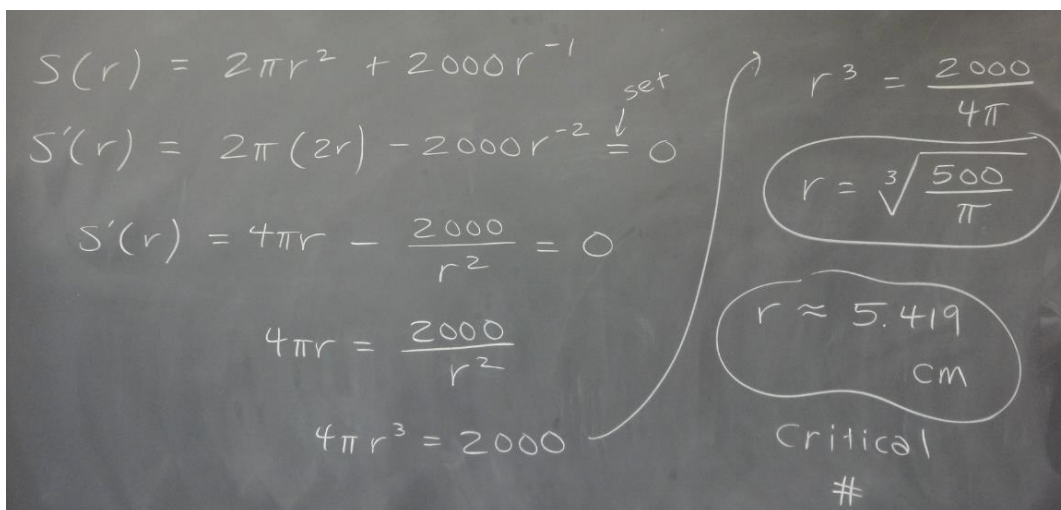 S(r) = 2πr² + 2000r⁻¹
set
S'(r) = 2π(2r) − 2000r⁻² = 0
S'(r) = 4πr − 2000/r² = 0
4πr = 2000/r²
4πr³ = 2000
r³ = 2000/4π
r = ∛(500/π)
r ≈ 5.419
cm
Critical
#